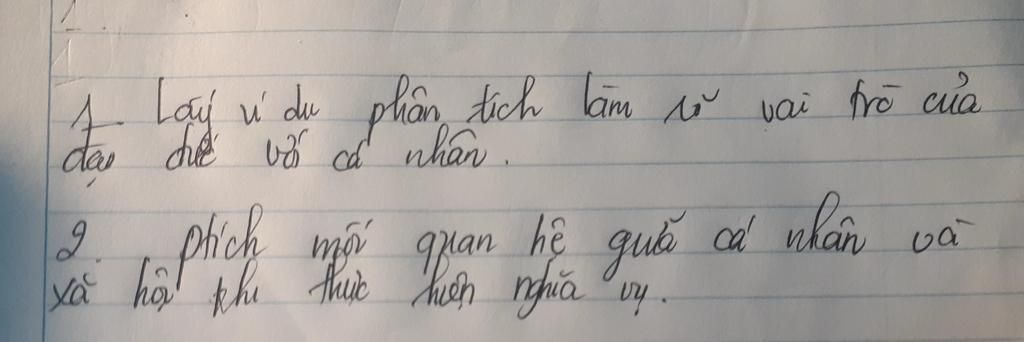 1. Lấy ví dụ phân tích làm rõ vai trò của
đạo đức với cá nhân.
2. ptích mối quan hệ giữa cá nhân và
xã hội khi thực hiện nghĩa vụ.